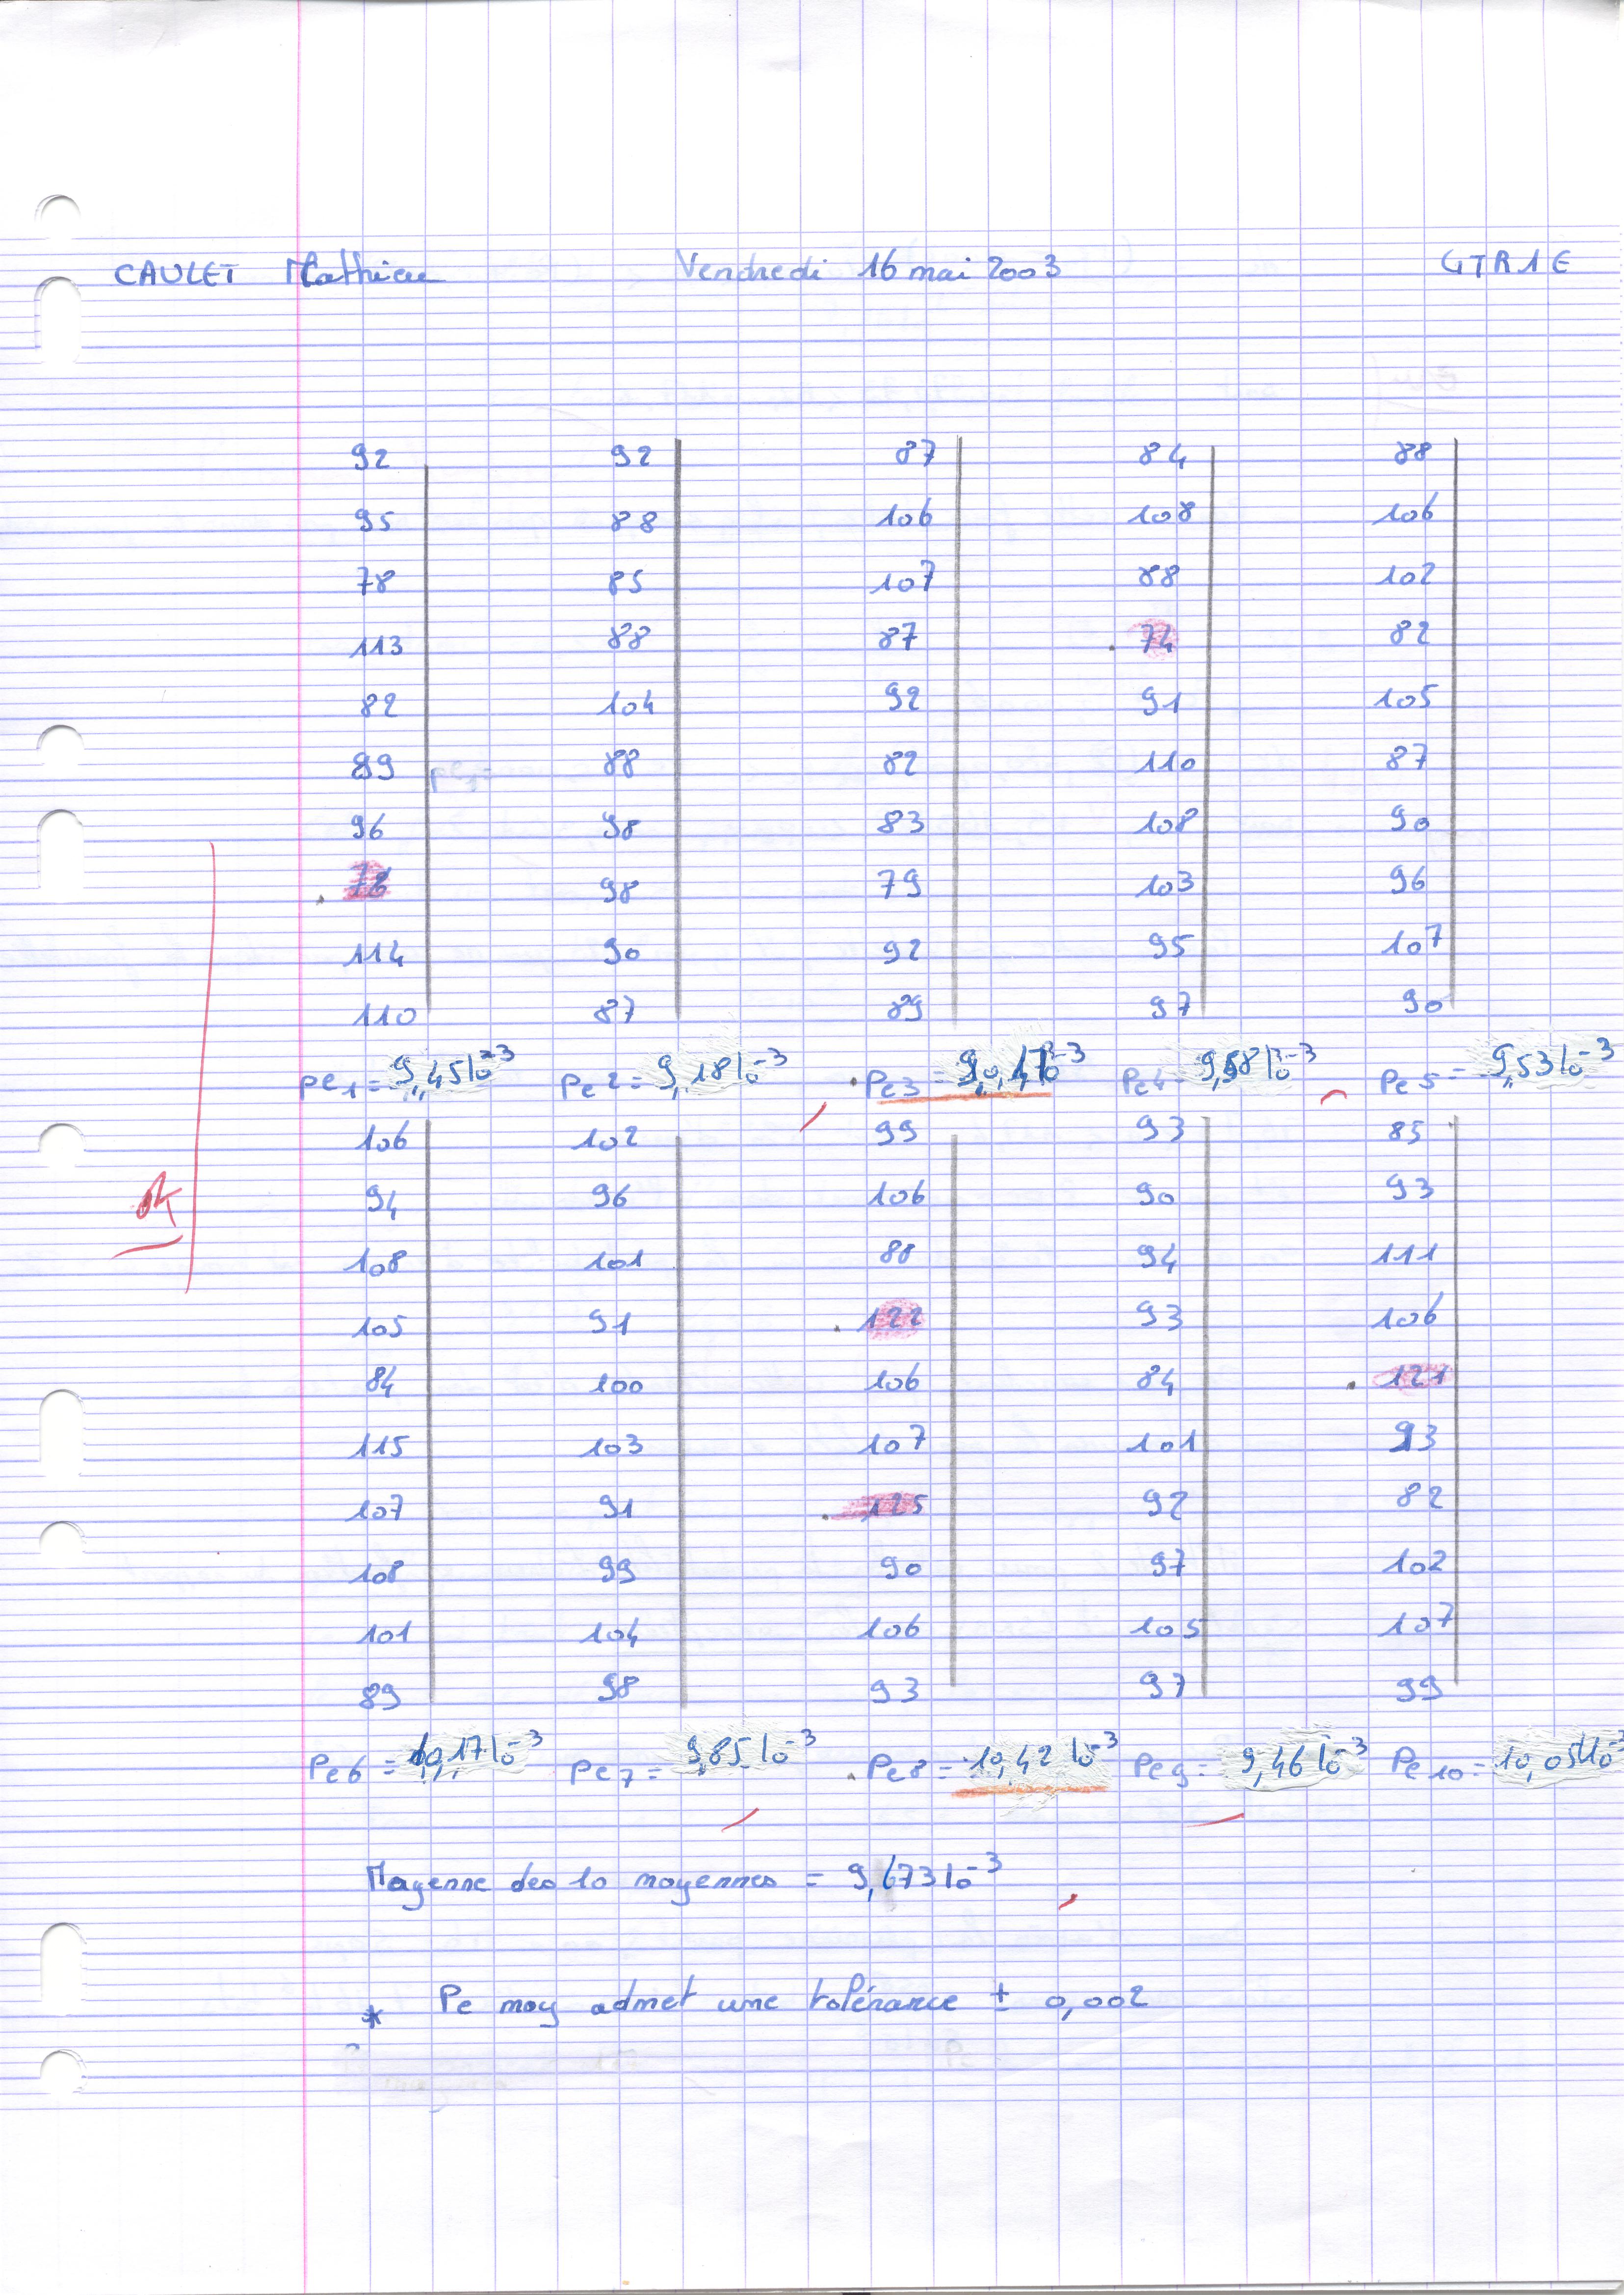 CAULET Mathieu Vendredi 16 mai 2003 GTR1E
92 92 87 84 88
95 88 106 108 106
78 85 107 88 102
113 88 87 74 82
82 104 92 91 105
89 88 82 110 87
96 98 83 108 90
98 79 103 96
114 90 92 95 107
110 87 89 97 90
Pe1 = 9,45 10-3 Pe2 = 9,18 10-3 Pe3 = Pe4 = Pe5 = 9,53 10-3
106 102 99 93 85
94 96 106 90 93
108 101 88 94 111
105 91 122 93 106
84 100 106 84 121
115 103 107 101 93
107 91 125 92 82
108 99 90 97 102
101 104 106 105 107
89 98 93 97 99
Pe6 = 10,17 10-3 Pe7 = 9,85 10-3 Pe8 = 10,42 10-3 Pe9 = 9,46 10-3 Pe10 = 10,05 10-3
Moyenne des 10 moyennes = 9,673 10-3
* Pe moy admet une tolérance ± 0,002
ok